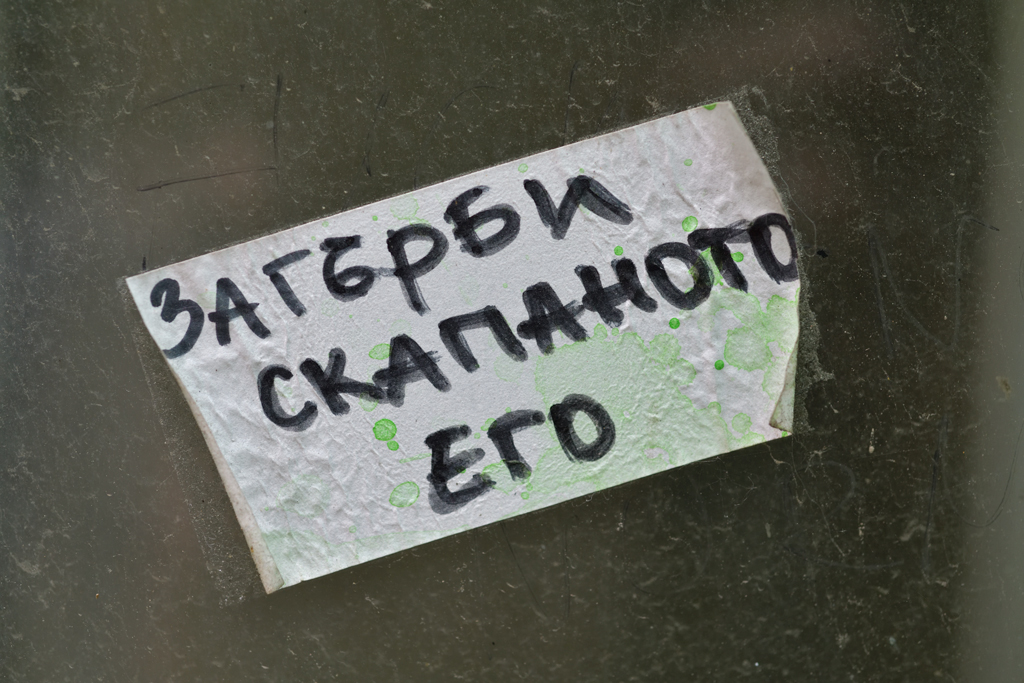 ЗАГЪРБИ
СКАПАНОТО
ЕГО